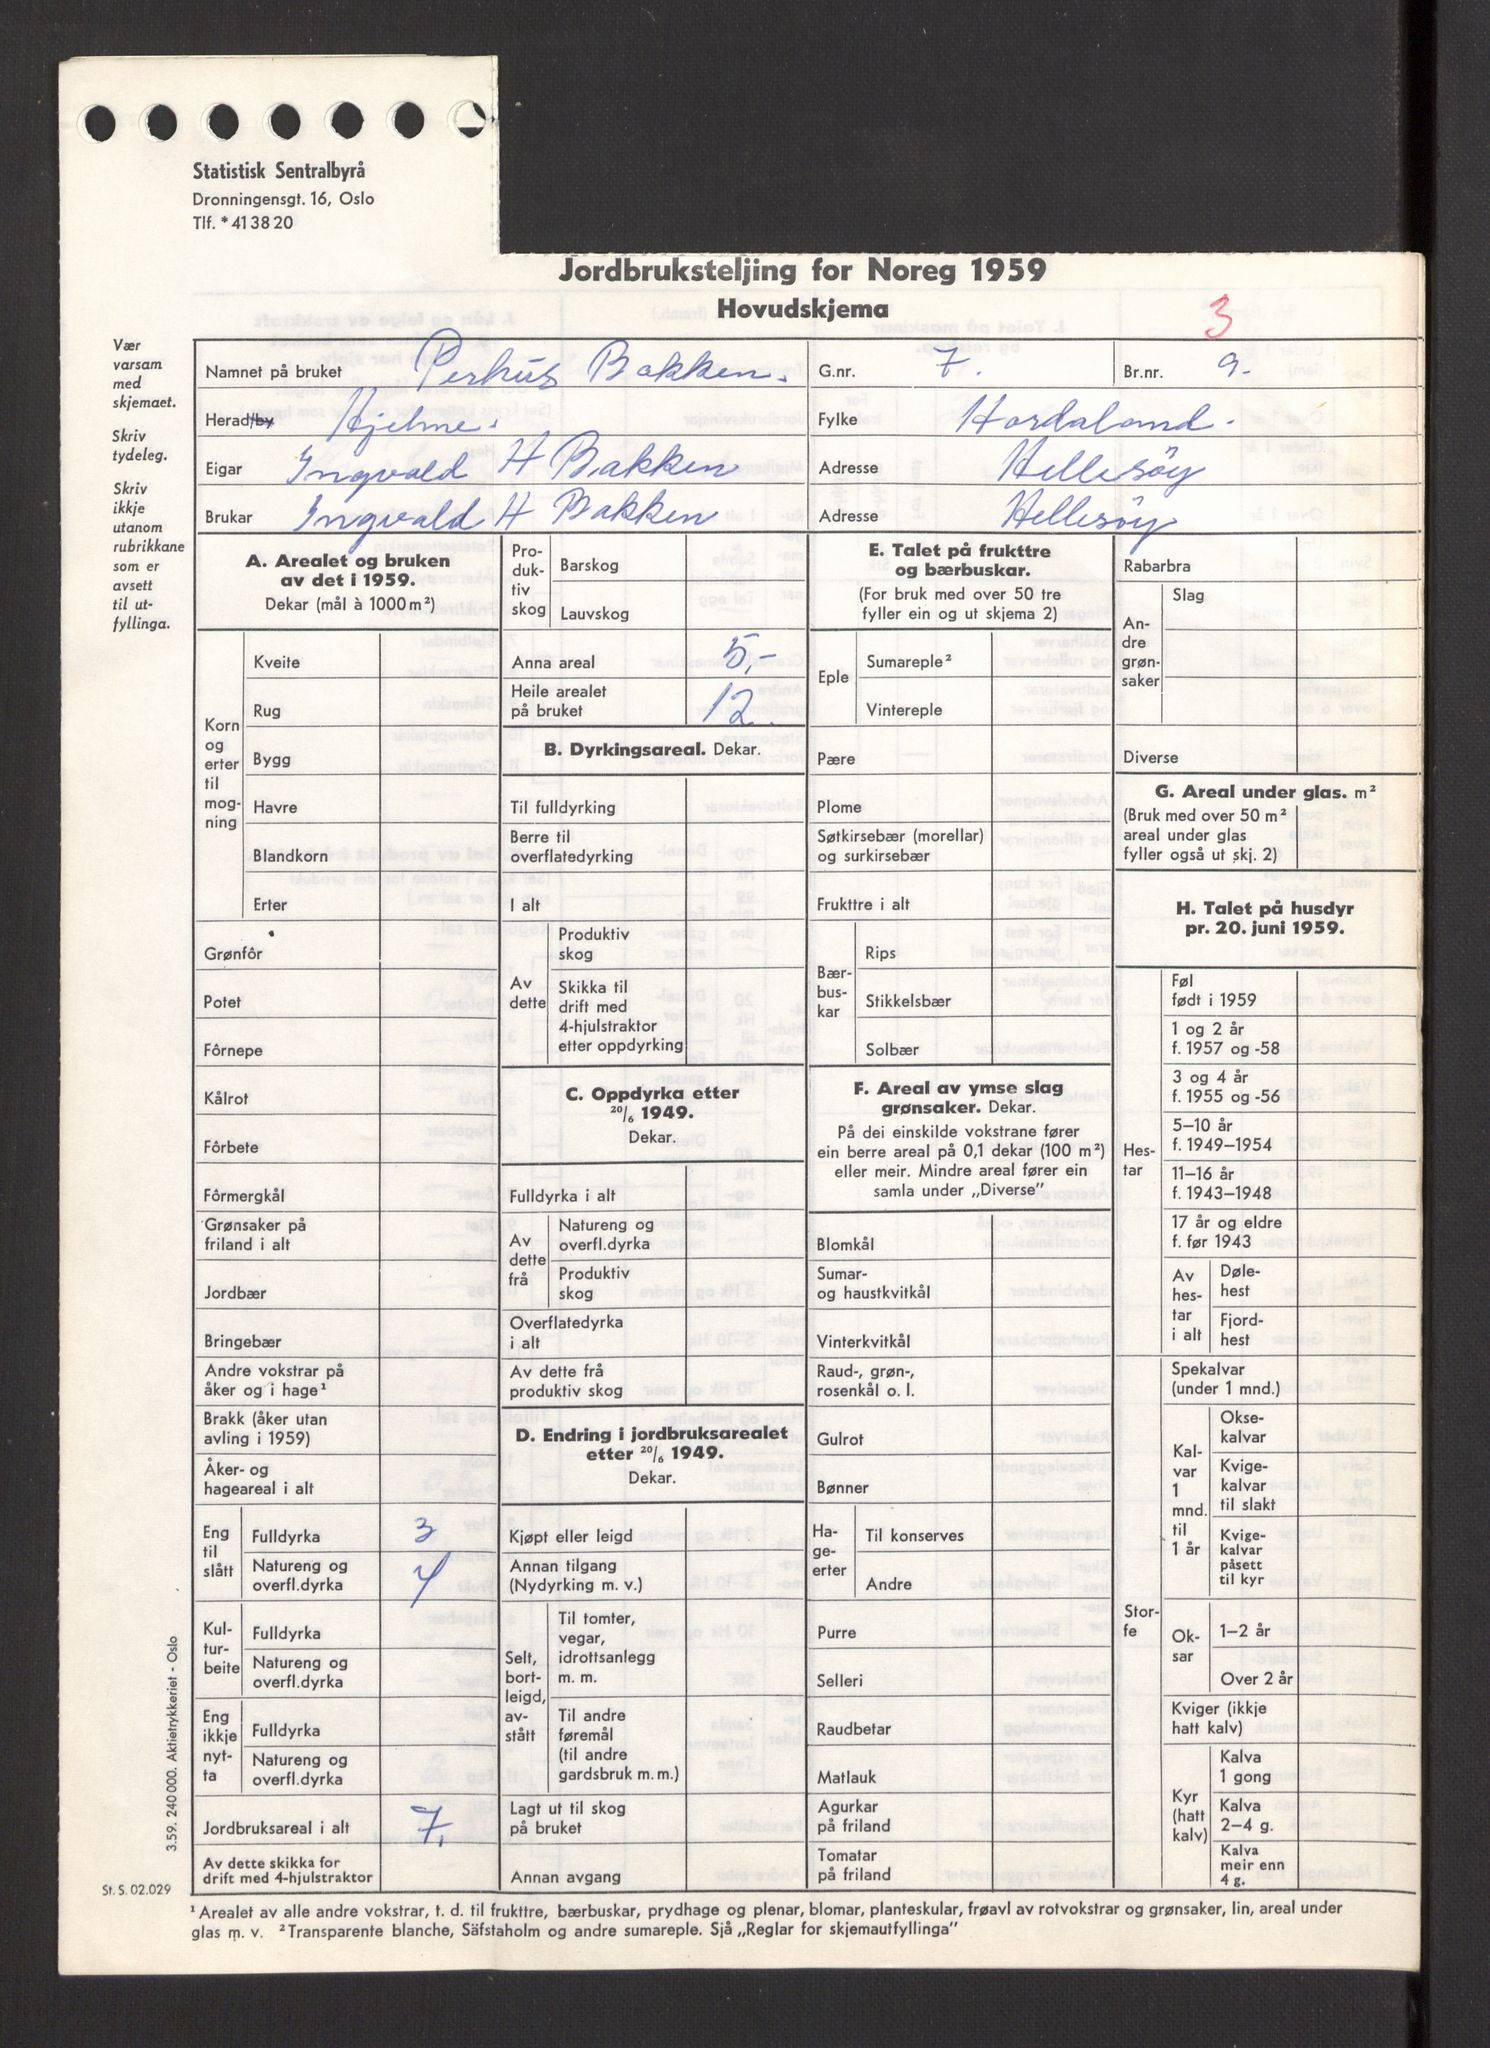 Statistisk Sentralbyrå
Dronningensgt. 16, Oslo
Tlf. *41 38 20
Jordbruksteljing for Noreg 1959
Hovudskjema
3
Vær
varsam
med
skjemaet.
Skriv
tydeleg.
Skriv
ikkje
utanom
rubrikkane
som er
avsett
til ut-
fyllinga.
Namnet på bruket Perhus Bakken. G.nr. 7. Br.nr. 9.
Herad/by Hjelme. Fylke Hordaland.
Eigar Ingvald H Bakken Adresse Hellesöy
Brukar Ingvald H Bakken Adresse Hellesöy
A. Arealet og bruken
av det i 1959.
Dekar (mål à 1000 m²)
Korn
og
erter
til
mog-
ning
Kveite
Rug
Bygg
Havre
Blandkorn
Erter
Grønfôr
Potet
Fôrnepe
Kålrot
Fôrbete
Fôrmergkål
Grønsaker på
friland i alt
Jordbær
Bringebær
Andre vokstrar på
åker og i hage¹
Brakk (åker utan
avling i 1959)
Åker- og
hageareal i alt
Eng
til
slått
Fulldyrka 3
Natureng og
overfl.dyrka 4
Kul-
tur-
beite
Fulldyrka
Natureng og
overfl.dyrka
Eng
ikkje
nyt-
ta
Fulldyrka
Natureng og
overfl.dyrka
Jordbruksareal i alt 7,
Av dette skikka for
drift med 4-hjulstraktor
Pro-
duk-
tiv
skog
Barskog
Lauvskog
Anna areal 5,-
Heile arealet
på bruket 12.
B. Dyrkingsareal. Dekar.
Til fulldyrking
Berre til
overflatedyrking
I alt
Av
dette
Produktiv
skog
Skikka til
drift med
4-hjulstraktor
etter oppdyrking
C. Oppdyrka etter
20/6 1949.
Dekar.
Fulldyrka i alt
Av
dette
frå
Natureng og
overfl.dyrka
Produktiv
skog
Overflatedyrka
i alt
Av dette frå
produktiv skog
D. Endring i jordbruksarealet
etter 20/6 1949.
Dekar.
Kjøpt eller leigd
Annan tilgang
(Nydyrking m. v.)
Selt,
bort-
leigd,
av-
stått
Til tomter,
vegar,
idrottsanlegg
m. m.
Til andre
føremål
(til andre
gardsbruk m. m.)
Lagt ut til skog
på bruket
Annan avgang
E. Talet på frukttre
og bærbuskar.
(For bruk med over 50 tre
fyller ein og ut skjema 2)
Eple
Sumareple²
Vintereple
Pære
Plome
Søtkirsebær (morellar)
og surkirsebær
Frukttre i alt
Bær-
bus-
kar
Rips
Stikkelsbær
Solbær
F. Areal av ymse slag
grønsaker. Dekar.
På dei einskilde vokstrane fører
ein berre areal på 0,1 dekar (100 m²)
eller meir. Mindre areal fører ein
samla under „Diverse”
Blomkål
Sumar-
og haustkvitkål
Vinterkvitkål
Raud-, grøn-,
rosenkål o. l.
Gulrot
Bønner
Ha-
ge-
erter
Til konserves
Andre
Purre
Selleri
Raudbetar
Matlauk
Agurkar
på friland
Tomatar
på friland
Rabarbra
An-
dre
grøn-
saker
Slag
Diverse
G. Areal under glas. m²
(Bruk med over 50 m²
areal under glas
fyller også ut skj. 2)
H. Talet på husdyr
pr. 20. juni 1959.
Hes-
tar
Føl
født i 1959
1 og 2 år
f. 1957 og -58
3 og 4 år
f. 1955 og -56
5–10 år
f. 1949–1954
11–16 år
f. 1943–1948
17 år og eldre
f. før 1943
Av
hes-
tar
i alt
Døle-
hest
Fjord-
hest
Stor-
fe
Spekalvar
(under 1 mnd.)
Kal-
var
1
mnd.
til
1 år
Okse-
kalvar
Kvige-
kalvar
til slakt
Kvige-
kalvar
påsett
til kyr
Ok-
sar
1–2 år
Over 2 år
Kviger (ikkje
hatt kalv)
Kyr
(hatt
kalv)
Kalva
1 gong
Kalva
2–4 g.
Kalva
meir enn
4 g.
3.59. 240 000. Aktietrykkeriet - Oslo
St. S. 02.029
¹ Arealet av alle andre vokstrar, t. d. til frukttre, bærbuskar, prydhage og plenar, blomar, planteskular, frøavl av rotvokstrar og grønsaker, lin, areal under
glas m. v. ² Transparente blanche, Säfstaholm og andre sumareple. Sjå „Reglar for skjemautfyllinga”